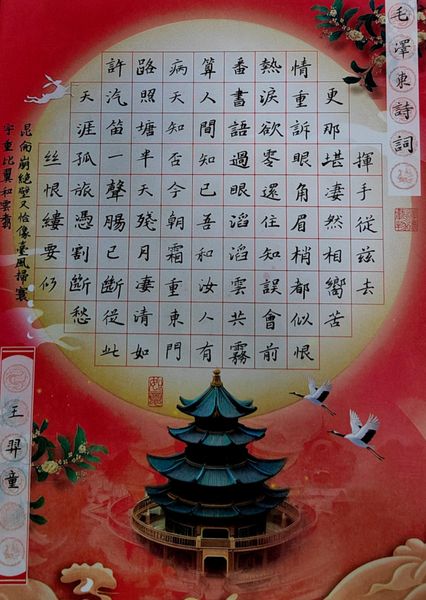 毛澤東詩詞
揮手從茲去
更那堪凄然相嚮苦
情重訴眼角眉梢都似恨
熱淚欲零還住知誤會前
番書語過眼滔滔雲共霧
算人間知己吾和汝人有
病天知否今朝霜重東門
路照塘半天殘月凄清如
許汽笛一聲腸已斷從此
天涯孤旅憑割斷愁
絲恨縷要似
昆侖崩絕壁又恰像臺風掃寰
宇重比翼和雲翥
王羿童